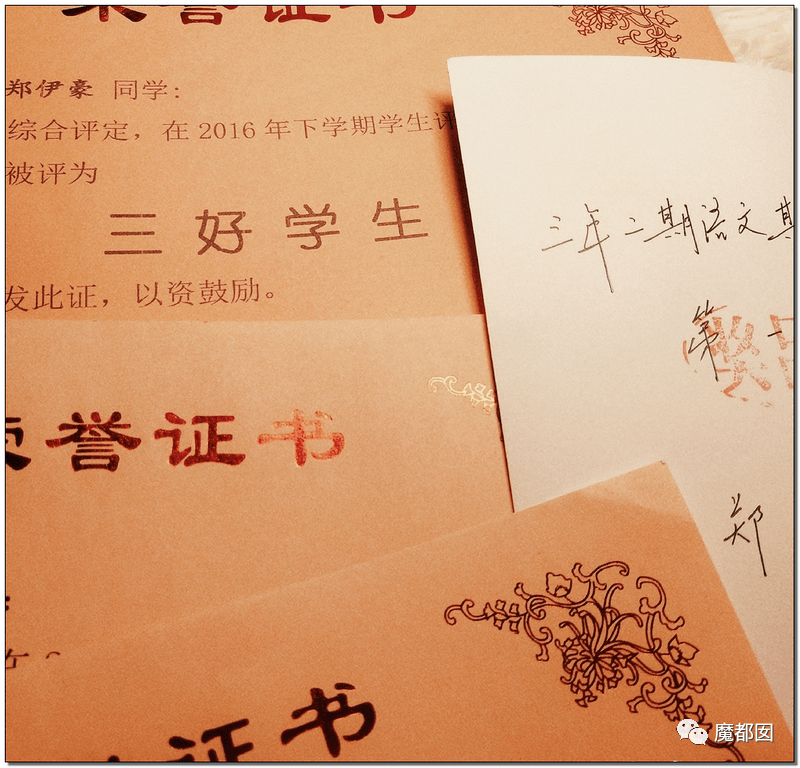 荣誉证书
郑伊豪 同学：
综合评定，在 2016 年下学期学生评
被评为
三好学生
发此证，以资鼓励。
三年二期语文期
第一
郑
荣誉证书
证书
魔都囡